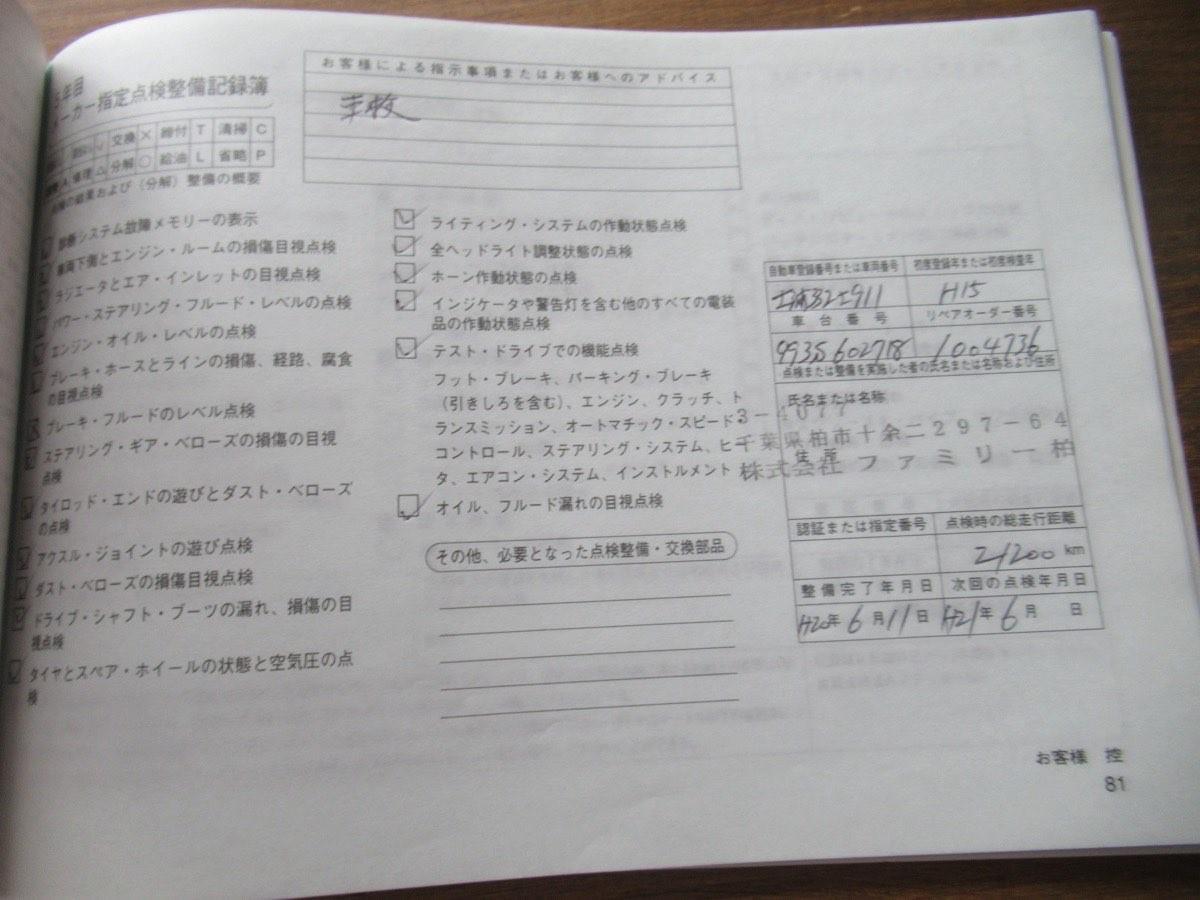 5年目
メーカー指定点検整備記録簿
交換 × 締付 T 清掃 C
修理 △ 分解 ○ 給油 L 省略 P
点検の結果および（分解）整備の概要
お客様による指示事項またはお客様へのアドバイス
診断システム故障メモリーの表示
車両下側とエンジン・ルームの損傷目視点検
ラジエータとエア・インレットの目視点検
パワー・ステアリング・フルード・レベルの点検
エンジン・オイル・レベルの点検
ブレーキ・ホースとラインの損傷、経路、腐食
の目視点検
ブレーキ・フルードのレベル点検
ステアリング・ギア・ベローズの損傷の目視
点検
タイロッド・エンドの遊びとダスト・ベローズ
の点検
アクスル・ジョイントの遊び点検
ダスト・ベローズの損傷目視点検
ドライブ・シャフト・ブーツの漏れ、損傷の目
視点検
タイヤとスペア・ホイールの状態と空気圧の点
検
ライティング・システムの作動状態点検
全ヘッドライト調整状態の点検
ホーン作動状態の点検
インジケータや警告灯を含む他のすべての電装
品の作動状態点検
テスト・ドライブでの機能点検
フット・ブレーキ、パーキング・ブレーキ
（引きしろを含む）、エンジン、クラッチ、ト
ランスミッション、オートマチック・スピード・
コントロール、ステアリング・システム、ヒー
タ、エアコン・システム、インストルメント
オイル、フルード漏れの目視点検
その他、必要となった点検整備・交換部品
自動車登録番号または車両番号 初度登録年または初度検査年
H15
車台番号 リペアオーダー番号
993S602718 1004736
点検または整備を実施した者の氏名または名称および住所
氏名または名称
3-4077
千葉県柏市十余二297-64
住所
株式会社 ファミリー柏
認証または指定番号 点検時の総走行距離
21200 km
整備完了年月日 次回の点検年月日
H20年6月11日 H21年6月 日
お客様 控
81